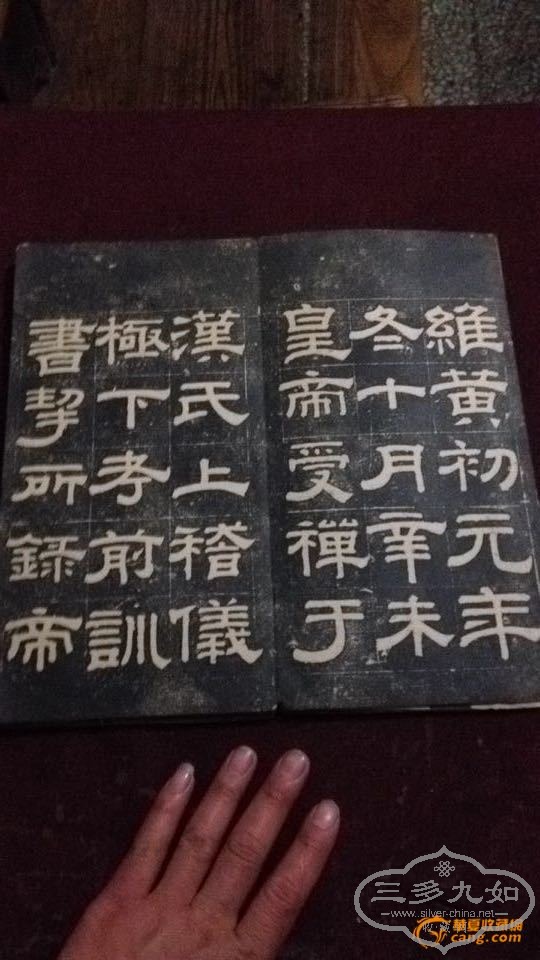 維黃初元年
冬十月辛未
皇帝受禪于
漢氏上稽儀
極下考前訓
書挈所錄帝
三多九如
www.silver-china.net
華夏收藏網
cang.com